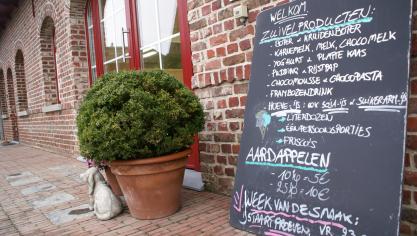 WELKOM
ZUIVELPRODUCTEN:
* BOTER & KRUIDENBOTER
* KARNEMELK, MELK, CHOCOMELK
* YOGHURT & PLATTE KAAS
* PUDDING & RIJSTPAP
* CHOCOMOUSSE & CHOCOPASTA
* FRAMBOZENDRINK
* HOEVE-IJS: OOK SOJA-IJS & SUIKERARM IJS
LITERDOZEN
EENPERSOONSPORTIES
FRISCO'S
AARDAPPELEN
10kg = 5€
25kg = 10€
WEEK VAN DE SMAAK:
STAARTPROEVEN, VR